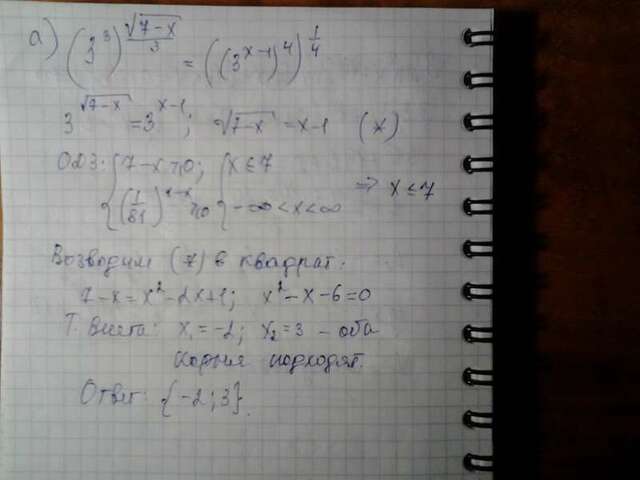 а) (3³)^(√(7-x)/3) = ((3^(x-1))⁴)^(1/4)
3^√(7-x) = 3^(x-1); √(7-x) = x-1 (*)
ОДЗ: { 7-x ≥ 0; { x ≤ 7
{ (1/81)^(1-x) ≥ 0 { -∞ < x < ∞ ⇒ x ≤ 7
Возводим (*) в квадрат:
7-x = x²-2x+1; x²-x-6=0
Т. Виета: x₁ = -2; x₂ = 3 - оба
корня подходят.
Ответ: {-2; 3}.